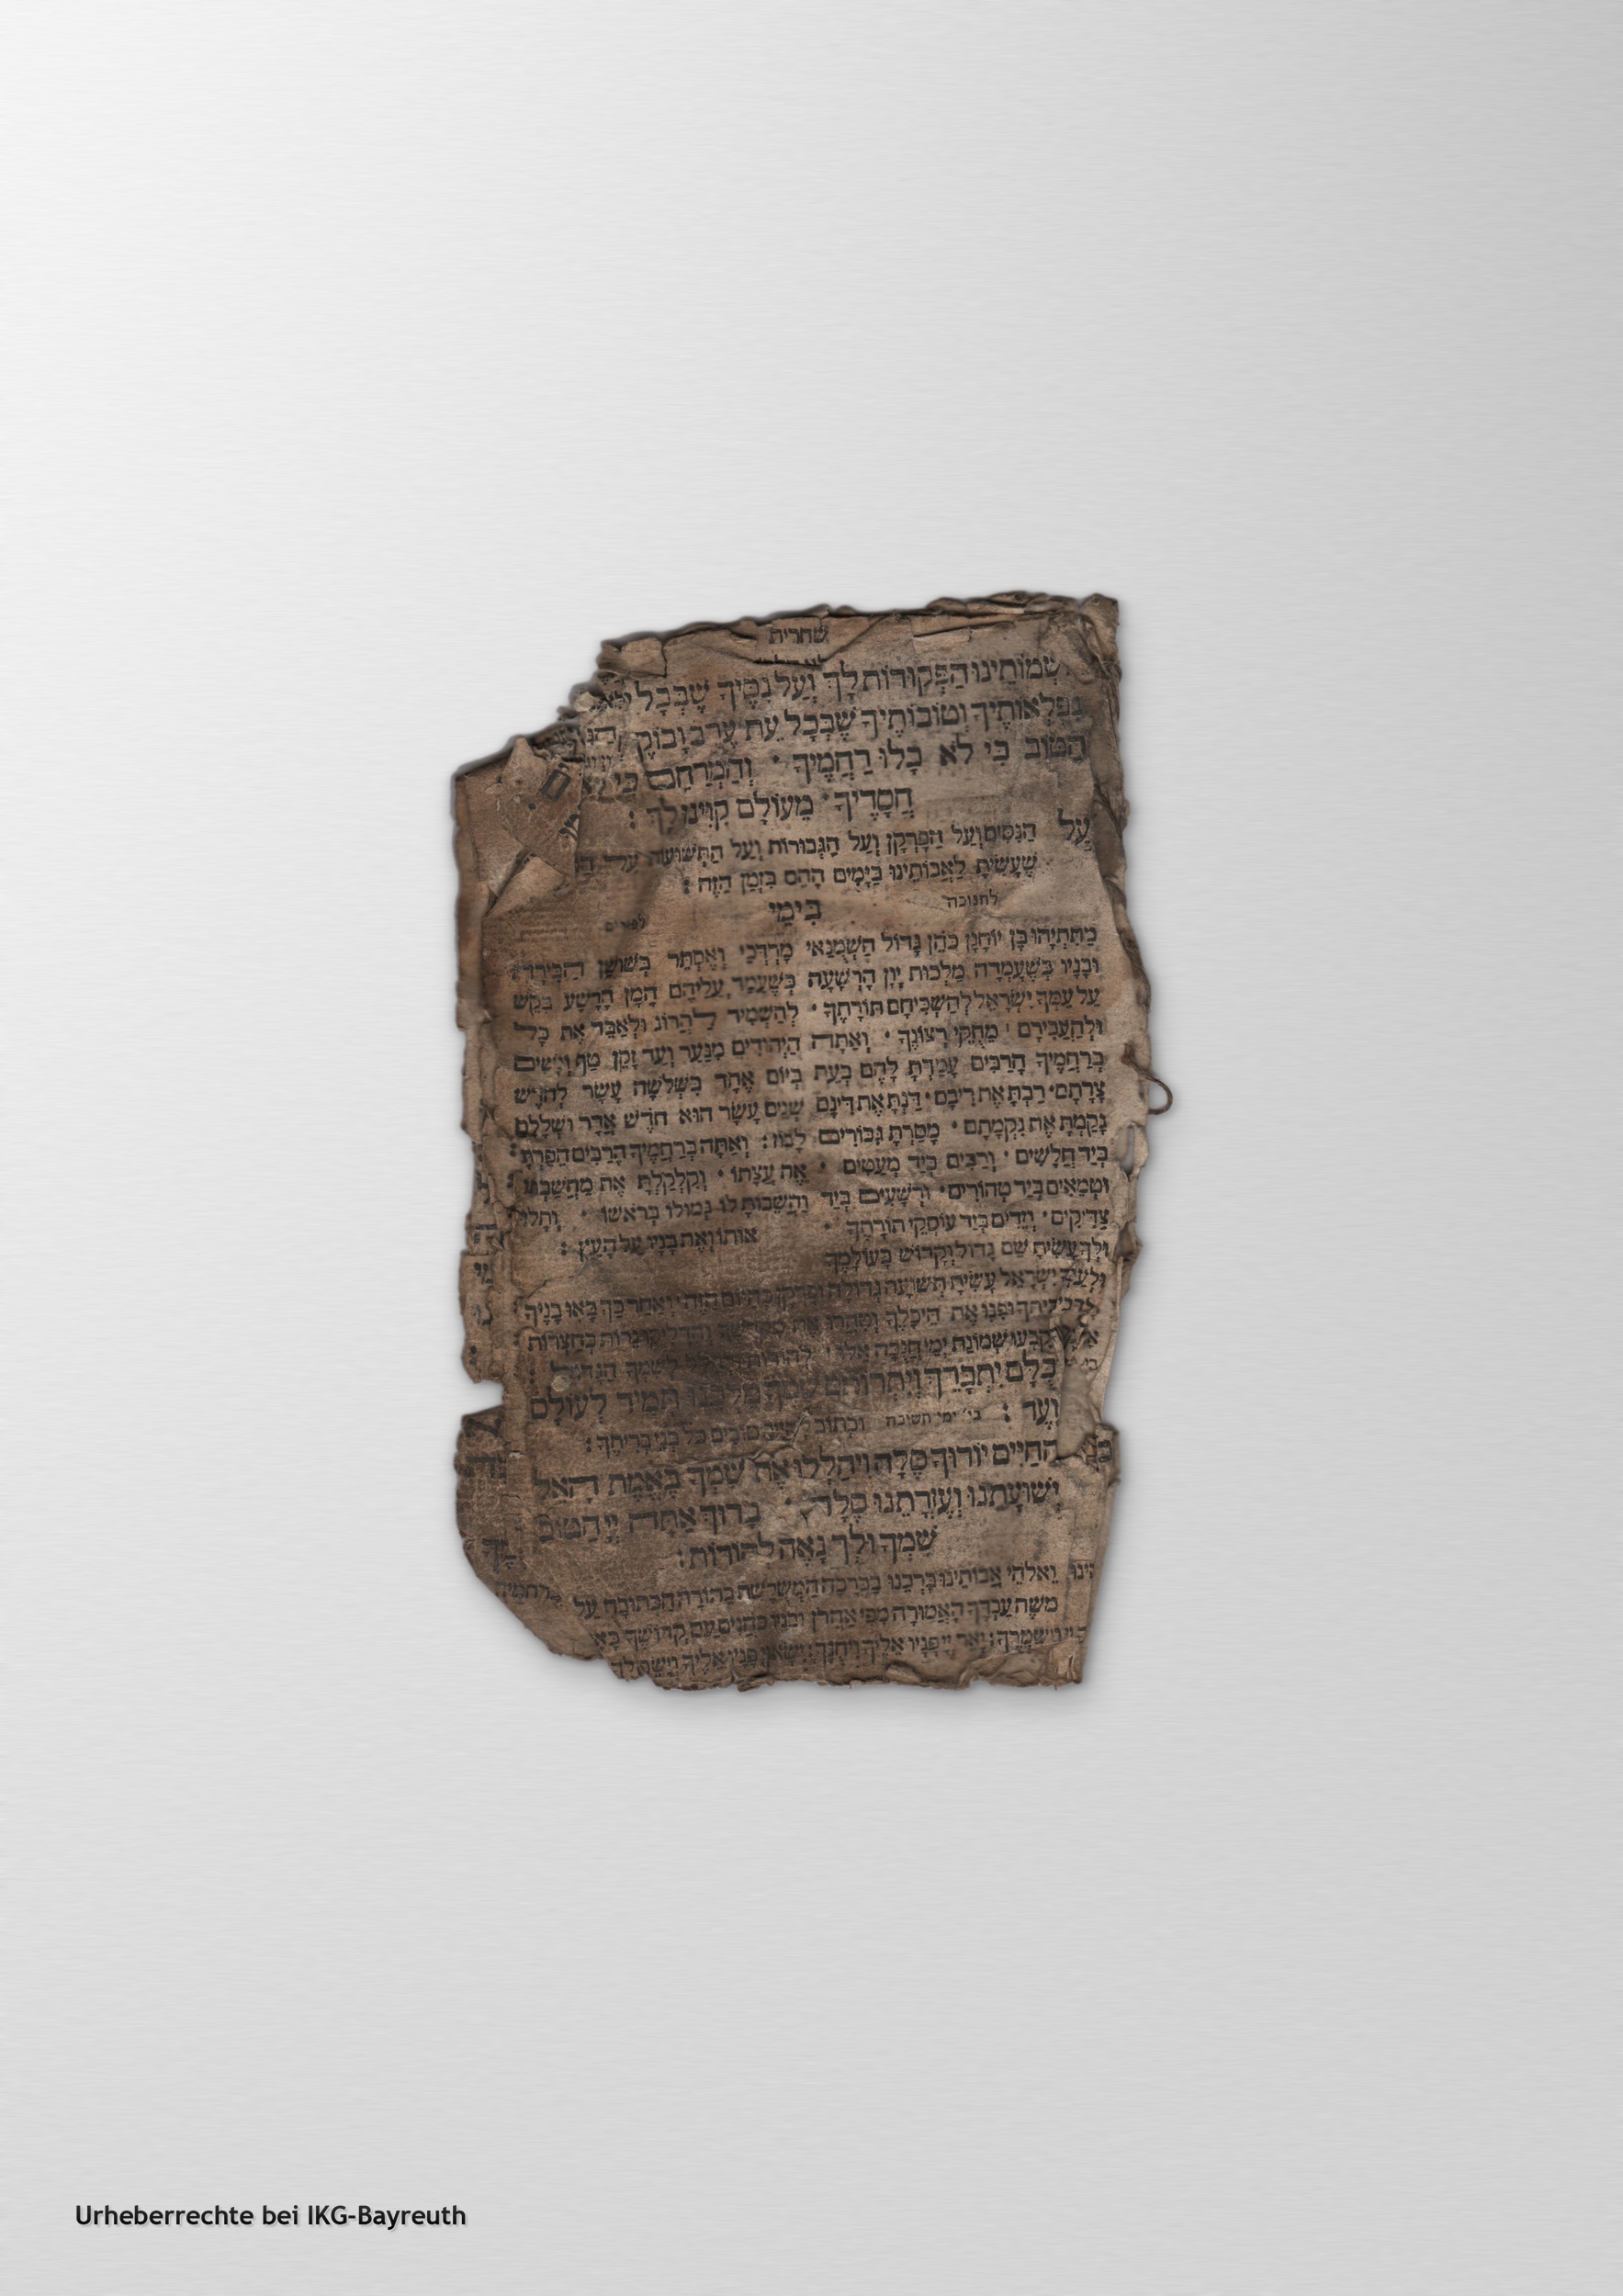 שחרית
נִשְׁמוֹתֵינוּ הַפְּקוּדוֹת לָךְ וְעַל נִסֶּיךָ שֶׁבְּכָל
נִפְלְאוֹתֶיךָ וְטוֹבוֹתֶיךָ שֶׁבְּכָל עֵת עֶרֶב וָבוֹקֶר
הַטּוֹב כִּי לֹא כָלוּ רַחֲמֶיךָ · וְהַמְרַחֵם כִּי
חֲסָדֶיךָ · מֵעוֹלָם קִוִּינוּ לָךְ :
עַל הַנִּסִּים וְעַל הַפֻּרְקָן וְעַל הַגְּבוּרוֹת וְעַל הַתְּשׁוּעוֹת
שֶׁעָשִׂיתָ לַאֲבוֹתֵינוּ בַּיָּמִים הָהֵם בַּזְּמַן הַזֶּה :
לחנוכה בִּימֵי לפורים
מַתִּתְיָהוּ בֶּן יוֹחָנָן כֹּהֵן גָּדוֹל חַשְׁמֻנַאי מָרְדְּכַי וְאֶסְתֵּר בְּשׁוּשַׁן הַבִּירָה
וּבָנָיו כְּשֶׁעָמְדָה מַלְכוּת יָוָן הָרְשָׁעָה כְּשֶׁעָמַד עֲלֵיהֶם הָמָן הָרָשָׁע בִּקֵּשׁ
עַל עַמְּךָ יִשְׂרָאֵל לְהַשְׁכִּיחָם תּוֹרָתֶךָ · לְהַשְׁמִיד לַהֲרוֹג וּלְאַבֵּד אֶת כָּל
וּלְהַעֲבִירָם מֵחֻקֵּי רְצוֹנֶךָ · וְאַתָּה הַיְּהוּדִים מִנַּעַר וְעַד זָקֵן טַף וְנָשִׁים
בְּרַחֲמֶיךָ הָרַבִּים עָמַדְתָּ לָהֶם בְּעֵת בְּיוֹם אֶחָד בִּשְׁלֹשָׁה עָשָׂר לְחֹדֶשׁ
צָרָתָם · רַבְתָּ אֶת רִיבָם · דַּנְתָּ אֶת דִּינָם שְׁנֵים עָשָׂר הוּא חֹדֶשׁ אֲדָר וּשְׁלָלָם
נָקַמְתָּ אֶת נִקְמָתָם · מָסַרְתָּ גִּבּוֹרִים לָבוֹז : וְאַתָּה בְּרַחֲמֶיךָ הָרַבִּים הֵפַרְתָּ
בְּיַד חַלָּשִׁים · וְרַבִּים בְּיַד מְעַטִּים · אֶת עֲצָתוֹ · וְקִלְקַלְתָּ אֶת מַחֲשַׁבְתּוֹ
וּטְמֵאִים בְּיַד טְהוֹרִים · וּרְשָׁעִים בְּיַד וַהֲשֵׁבוֹתָ לּוֹ גְּמוּלוֹ בְּרֹאשׁוֹ · וְתָלוּ
צַדִּיקִים · וְזֵדִים בְּיַד עוֹסְקֵי תוֹרָתֶךָ · אוֹתוֹ וְאֶת בָּנָיו עַל הָעֵץ :
וּלְךָ עָשִׂיתָ שֵׁם גָּדוֹל וְקָדוֹשׁ בְּעוֹלָמֶךָ
וּלְעַמְּךָ יִשְׂרָאֵל עָשִׂיתָ תְּשׁוּעָה גְדוֹלָה וּפֻרְקָן כְּהַיּוֹם הַזֶּה · וְאַחַר כַּךְ בָּאוּ בָנֶיךָ
לִדְבִיר בֵּיתֶךָ וּפִנּוּ אֶת הֵיכָלֶךָ וְטִהֲרוּ אֶת מִקְדָּשֶׁךָ וְהִדְלִיקוּ נֵרוֹת בְּחַצְרוֹת
וְקָבְעוּ שְׁמוֹנַת יְמֵי חֲנֻכָּה אֵלּוּ · לְהוֹדוֹת לְשִׁמְךָ הַגָּדוֹל :
כֻּלָּם יִתְבָּרֵךְ וְיִתְרוֹמֵם שִׁמְךָ מַלְכֵּנוּ תָּמִיד לְעוֹלָם
וָעֶד : בי' ימי תשובה וּכְתוֹב לְחַיִּים טוֹבִים כָּל בְּנֵי בְרִיתֶךָ :
הַחַיִּים יוֹדוּךָ סֶּלָה וִיהַלְלוּ אֶת שִׁמְךָ בֶּאֱמֶת הָאֵל
יְשׁוּעָתֵנוּ וְעֶזְרָתֵנוּ סֶלָה · בָּרוּךְ אַתָּה יְיָ הַטּוֹב
שִׁמְךָ וּלְךָ נָאֶה לְהוֹדוֹת :
וֵאלֹהֵי אֲבוֹתֵינוּ בָּרְכֵנוּ בַבְּרָכָה הַמְשֻׁלֶּשֶׁת בַּתּוֹרָה הַכְּתוּבָה עַל
מֹשֶׁה עַבְדֶּךָ הָאֲמוּרָה מִפִּי אַהֲרֹן וּבָנָיו כֹּהֲנִים עַם קְדוֹשֶׁךָ כָּאָ
וְיִשְׁמְרֶךָ : יָאֵר יְיָ פָּנָיו אֵלֶיךָ וִיחֻנֶּךָּ : יִשָּׂא יְיָ פָּנָיו אֵלֶיךָ וְיָשֵׂם לְךָ
Urheberrechte bei IKG-Bayreuth